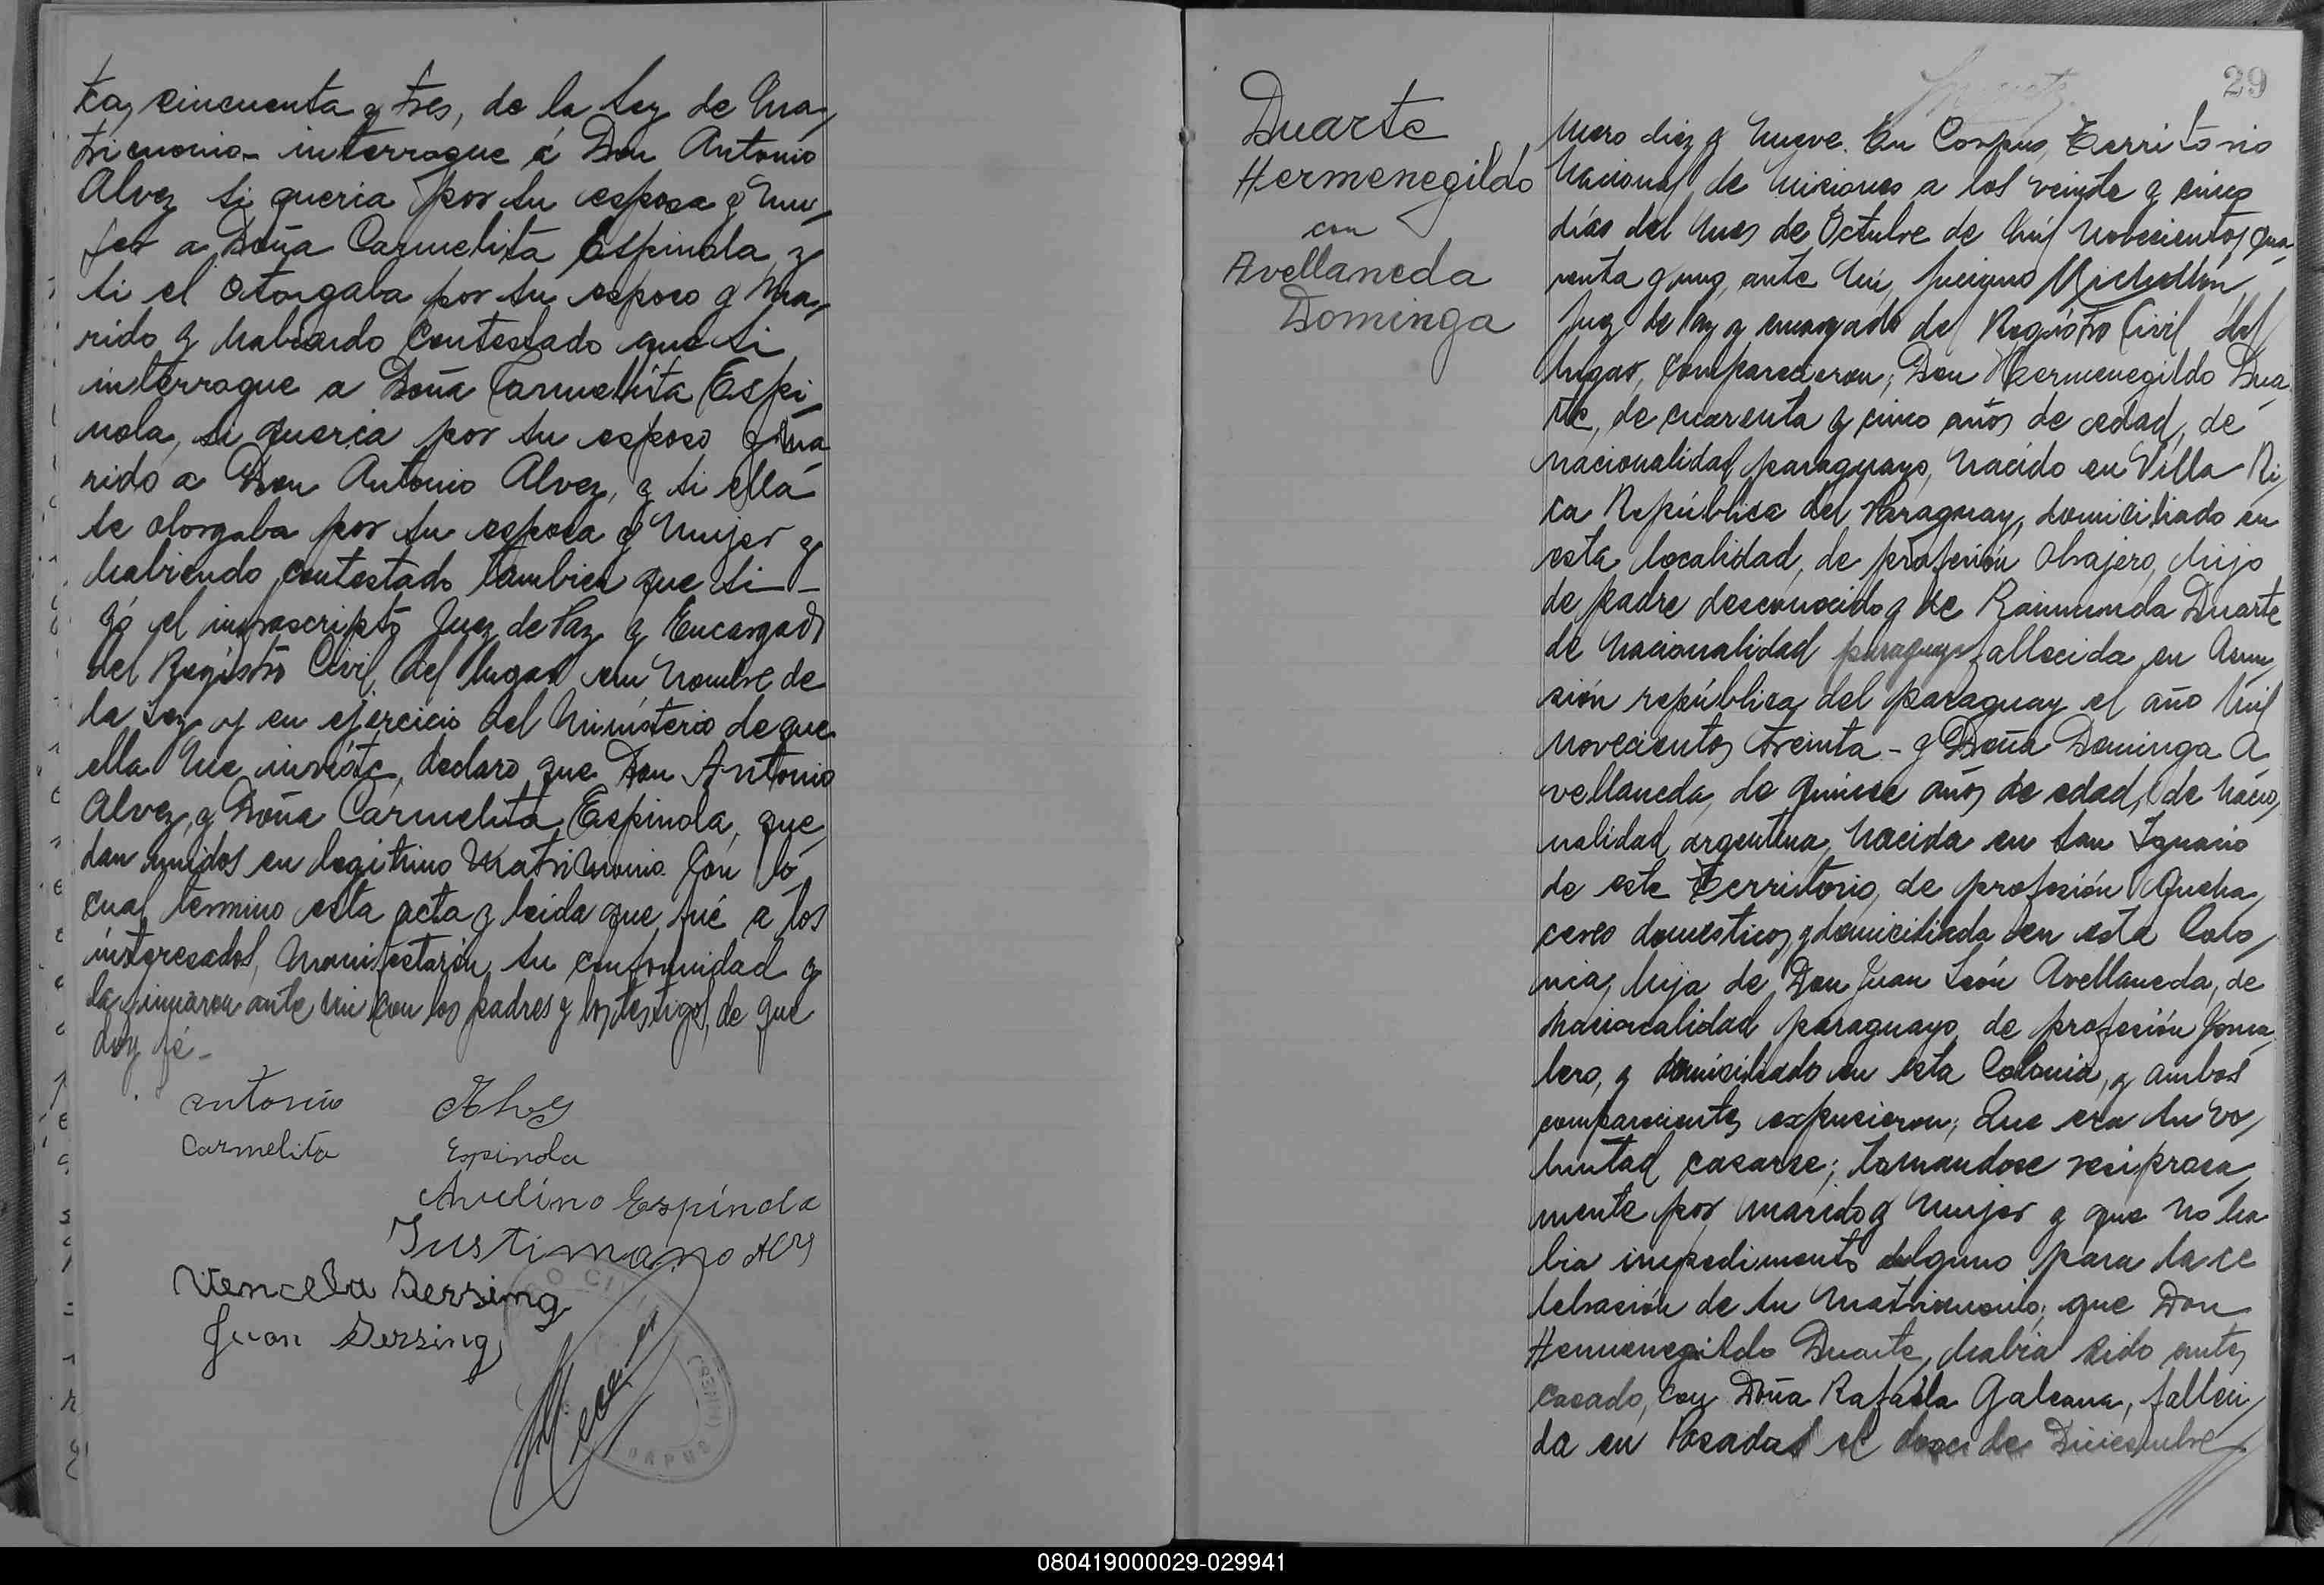 ta, cincuenta y tres, de la Ley de Ma,
trimonio- interrogue á Don Antonio
Alvez si queria por su esposa y Mu,
jer a Doña Carmelita Espinola, y
si el otorgaba por su esposo y Ma,
rido y habiendo contestado que si
interrogue a Doña Carmelita Espi,
nola, si queria por su esposo y Ma
rido a Don Antonio Alvez, y si ella
se otorgaba por su esposa y Mujer y
habiendo contestado tambien que si-
yó el infrascripto Juez de Paz y Encargado
del Registro Civil del lugar en Nombre de
la Ley y en ejercicio del Ministerio de que
ella Me inviste, declaro que Don Antonio
Alvez, y Doña Carmelita Espinola, que,
dan unidos en legitimo Matrimonio. Con lo
cual termino esta acta y leida que fué a los
interesados, Manifestarón su conformidad y
la firmaron ante mi con los padres y los testigos, de que
doy fé-
Antonio Alvez
Carmelita Espinola
Avelino Espínola
Justimano
Vencela Dersing
Juan Dersing
29
Duarte
Hermenegildo
con
Avellaneda
Dominga
Mero diez y Nueve. En Corpus, Territorio
Nacional de Misiones a los veinte y cinco
días del Mes de Octubre de Mil Novecientos, cua,
renta y uno, ante Mi,
Juez de Paz y encargado del Registro Civil del
lugar, Comparecieron; Don Hermenegildo Dua
rte, de cuarenta y cinco años de edad, de
nacionalidad paraguayo, Nacido en Villa Ri,
ca República del Paraguay, domiciliado en
esta localidad, de profesión Obrajero, hijo
de padre desconocido y de Raimunda Duarte
de Nacionalidad paraguaya fallecida en Asun,
sión república del paraguay el año Mil
Novecientos treinta- y Doña Dominga A
vellaneda, de quince años de edad, de Nacio,
nalidad argentina, Nacida en San Ignacio
de este Territorio, de profesión Queha,
ceres domesticos, y domiciliada en esta Colo,
nia, hija de Don Juan León Avellaneda, de
Nacionalidad paraguayo, de profesión Jorna,
lero, y domiciliado en esta Colonia, y ambos
comparecientes expusieron; Que era su vo,
luntad casarse; tomandose reciproca,
mente por marido y Mujer y que No ha
bia impedimento alguno para la ce
lebración de su Matrimonio; que Don
Hermenegildo Duarte, habia sido antes
casado, con Doña Rafaela Galeana, falleci,
da en Posadas el doce de Diciembre
080419000029-029941